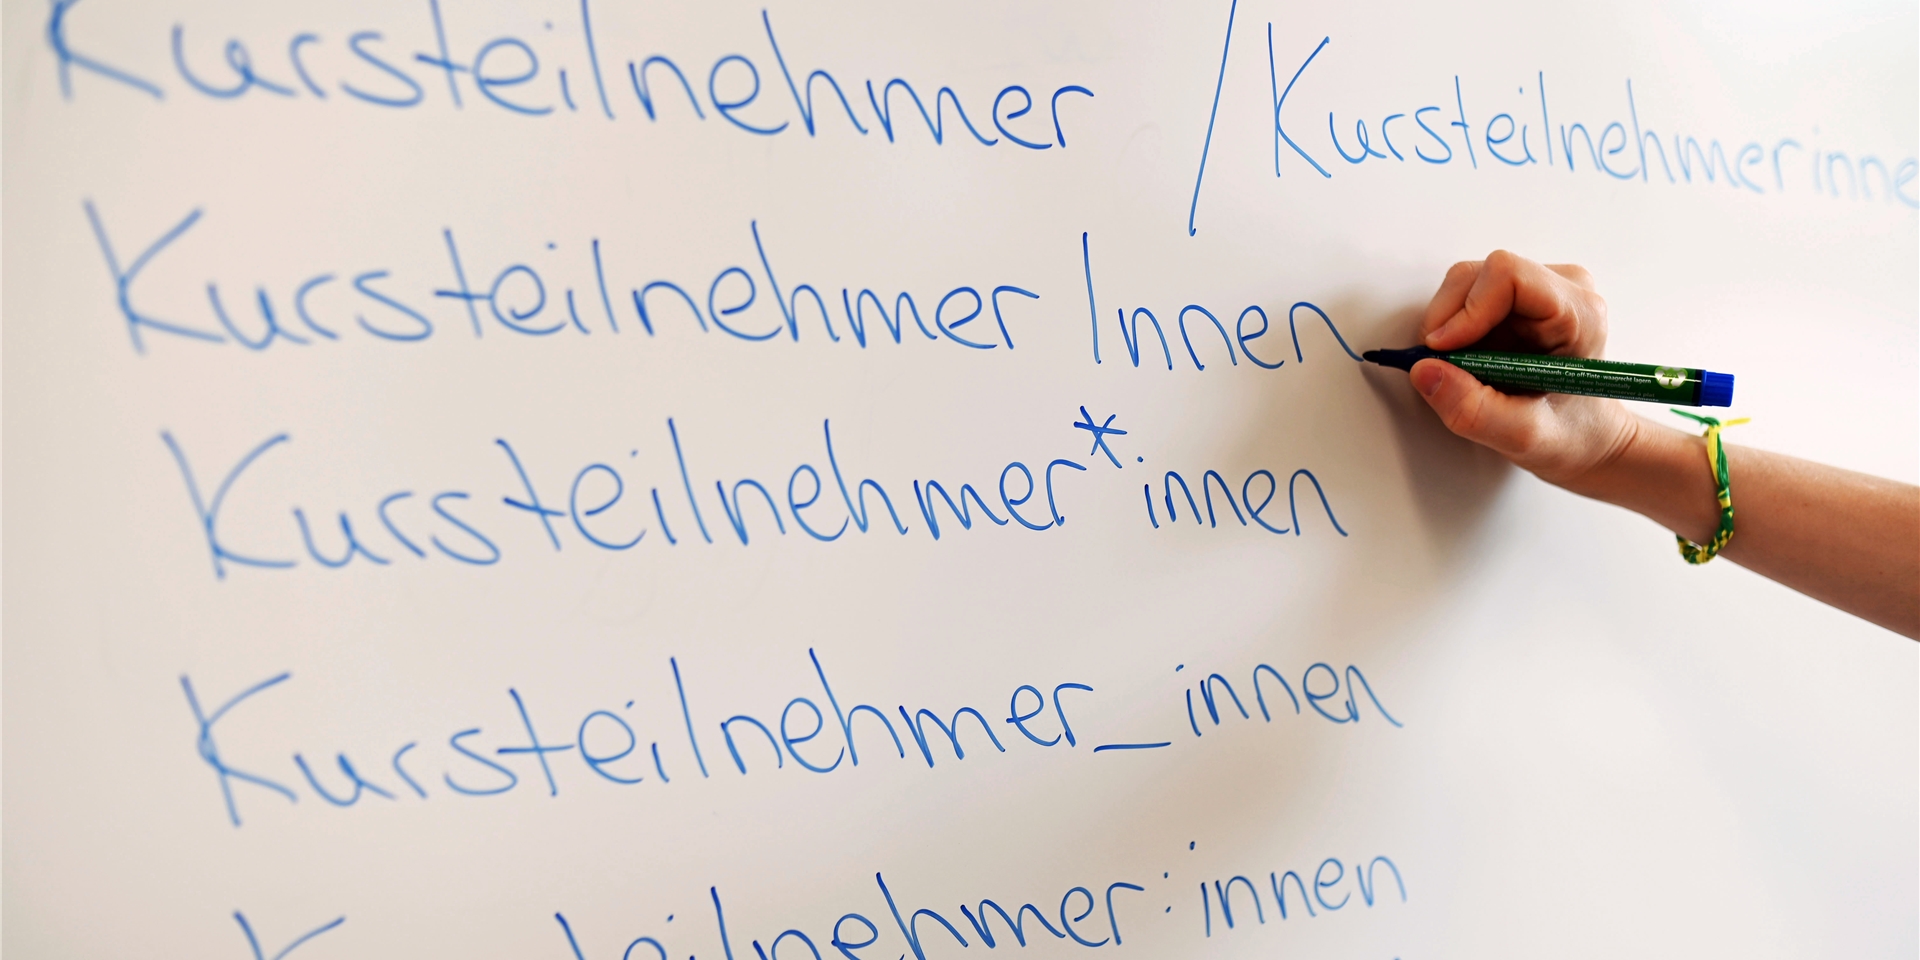 Kursteilnehmer / Kursteilnehmerinne
KursteilnehmerInnen
Kursteilnehmer*innen
Kursteilnehmer_innen
Kursteilnehmer:innen
trocken abwischbar von Whiteboards · Cap off-Tinte · waagrecht lagern